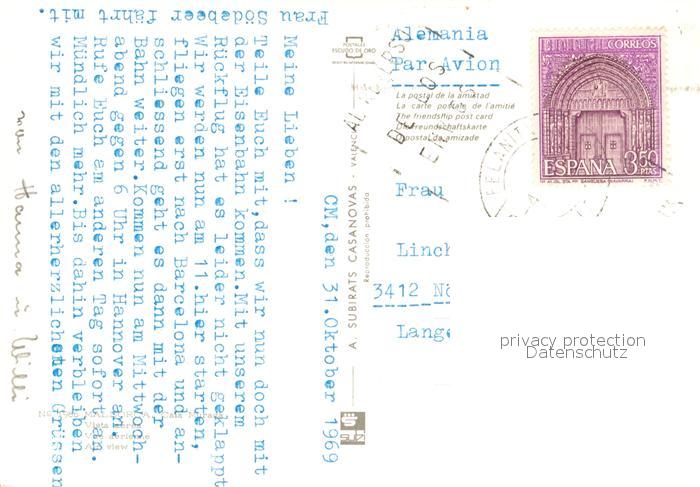 Frau Södebeer fährt mit.
CM,den 31.Oktober 1969
Meine Lieben !
Teile Euch mit,dass wir nun doch mit
der Eisenbahn kommen.Mit unserem
Rückflug hat es leider nicht geklappt
Wir werden nun am 11.hier starten,
fliegen erst nach Barcelona und an-
schliessend geht es dann mit der
Bahn weiter.Kommen nun am Mittwoch-
abend gegen 6 Uhr in Hannover an.
Rufe Euch am anderen Tag sofort an.
Mündlich mehr.Bis dahin verbleiben
wir mit den allerherzlichsten Grüssen
Hanna u. Willi
POSTALES
ESCUDO DE ORO
A. SUBIRATS CASANOVAS - VALENCIA
Reproducción prohibida
Vista aérea
Vue aérienne
Air view
Alemania
Par Avion
La postal de la amistad
La carte postale de l'amitié
The friendship post card
Die Freundschaftskarte
postal da amizade
Frau
Linch
3412 Nö
Lange
CORREOS
ESPAÑA 3,50
PTAS
FELANIT
privacy protection
Datenschutz